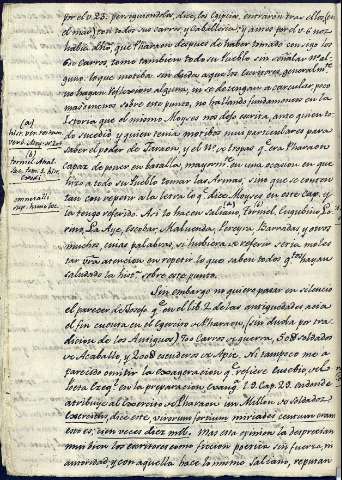 por el v. 23. persiguiendolos, dice, los Egipcios, entraron tras ellos (en
el mar) con todos sus carros, y Cavalleria; y antes por el v. 6 nos
habia dho, que Pharaon despues de haber tomado consigo los
600 Carros, tomo tambien todo su Pueblo sin señalar nº al-
guno: lo que moteba sin duda a que los escritores generalmte
no hagan reflexion alguna, ni se detengan a calcular poco
mas o menos sobre este punto, no hallando fundamento en la
Istoria que el mismo Moyses nos dejo escrita, ante quien to-
do sucedió, y quien tenia motivos mui particulares para
saber el poder de Faraon, y el Nº de tropas qe era Pharaon
Capaz de poner en batalla, mayormte en una ocasion en que
hizo a todo su Pueblo tomar las Armas, sino que se conten-
tan con repetir a la letra lo qe dice Moyses en este Cap. y
lo tengo referido. Asi lo hacen Saliano, Torniel, Eugubino
La Aye, Escobar, Maluenda, Pereyra, Barradas, y otros
muchos, cuias palabras, si hubiera de referir seria moles-
tar vra atencion en repetir lo que saben todos qtos hayan
saludado la histª sobre este punto.
(a)
(b)
Torniel. Anal.
Sin embargo no quiero pasar en silencio
el parecer de Josefo qe en el lib. 2 de las antiguedades acia
el fin cuenta en el Egercito de Pharaon, (sin duda por tra-
dicion de los Antiguos) 600 Carros de guerra, 50U soldados
de Acaballo, y 200U escuderos de Apie. Ni tampoco me a
parecido omitir la exageracion qe refiere Eusebio, de
en la preparacion evang. l. 9. Cap. 29. en donde
atribuye al Exercito de Pharaon un Millon de soldados:
Exercitus, dice este, virorum fortium miriades centum erant
esto es, cien veces diez mil. Mas esta opinion la desprecian
mui bien los escritores como ficcion poetica sin fuerza, ni
autoridad; y con aquella hace lo mismo Saliano, reputan